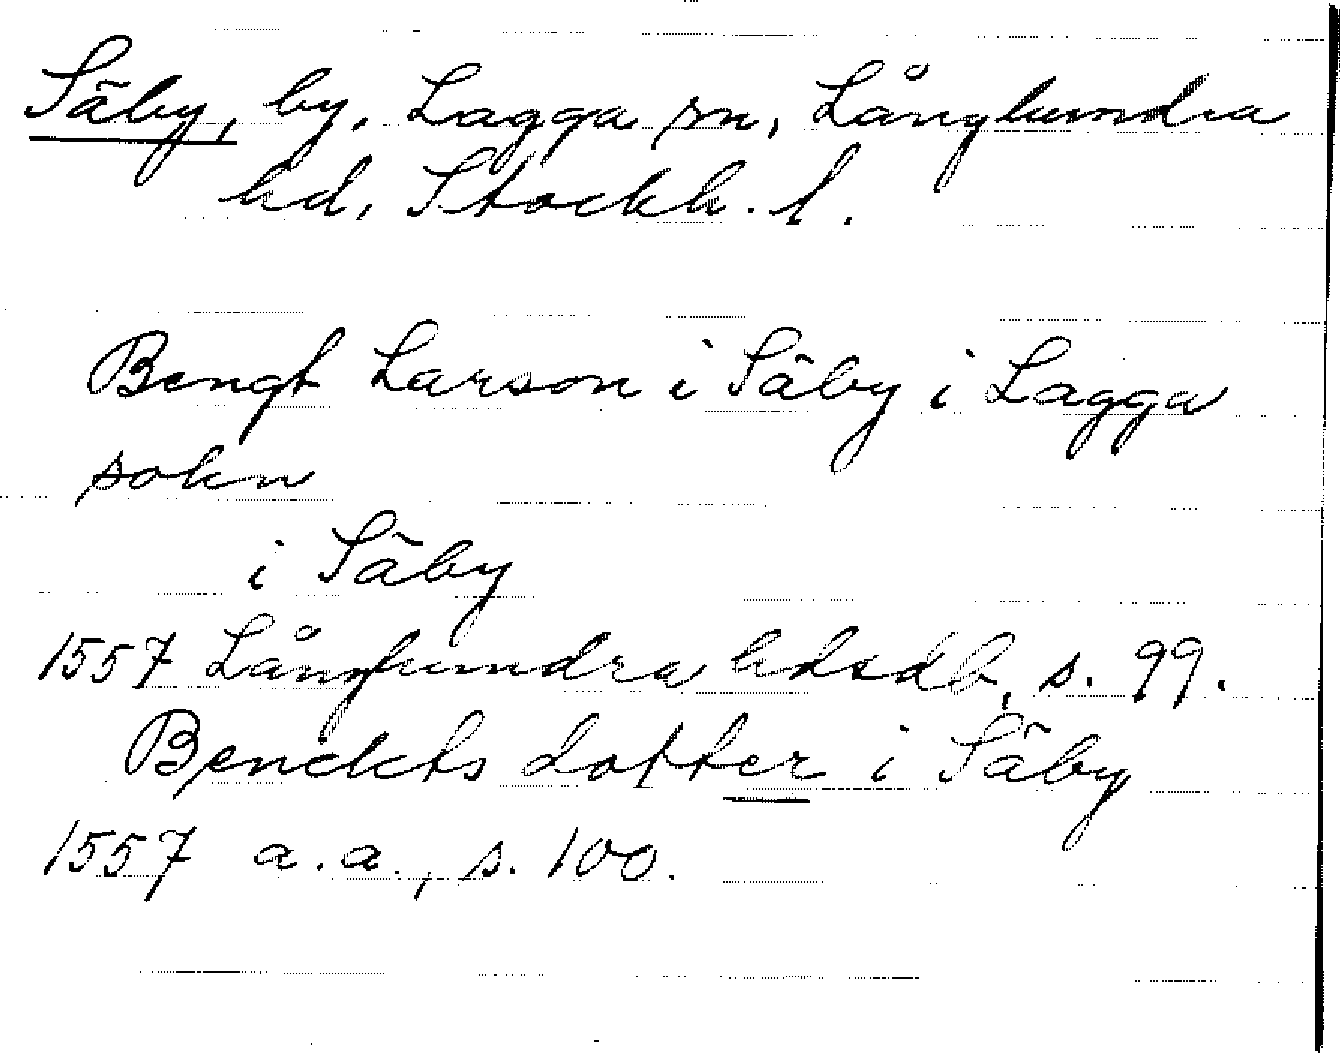 Säby, by, Lagga sn, Långhundra
hd, Stockh. l.
Bengt Larson i Säby i Lagga
sokn
i Säby
1557 Långhundra hdsdb, s. 99.
Benckts dotter i Säby
1557 a.a., s. 100.